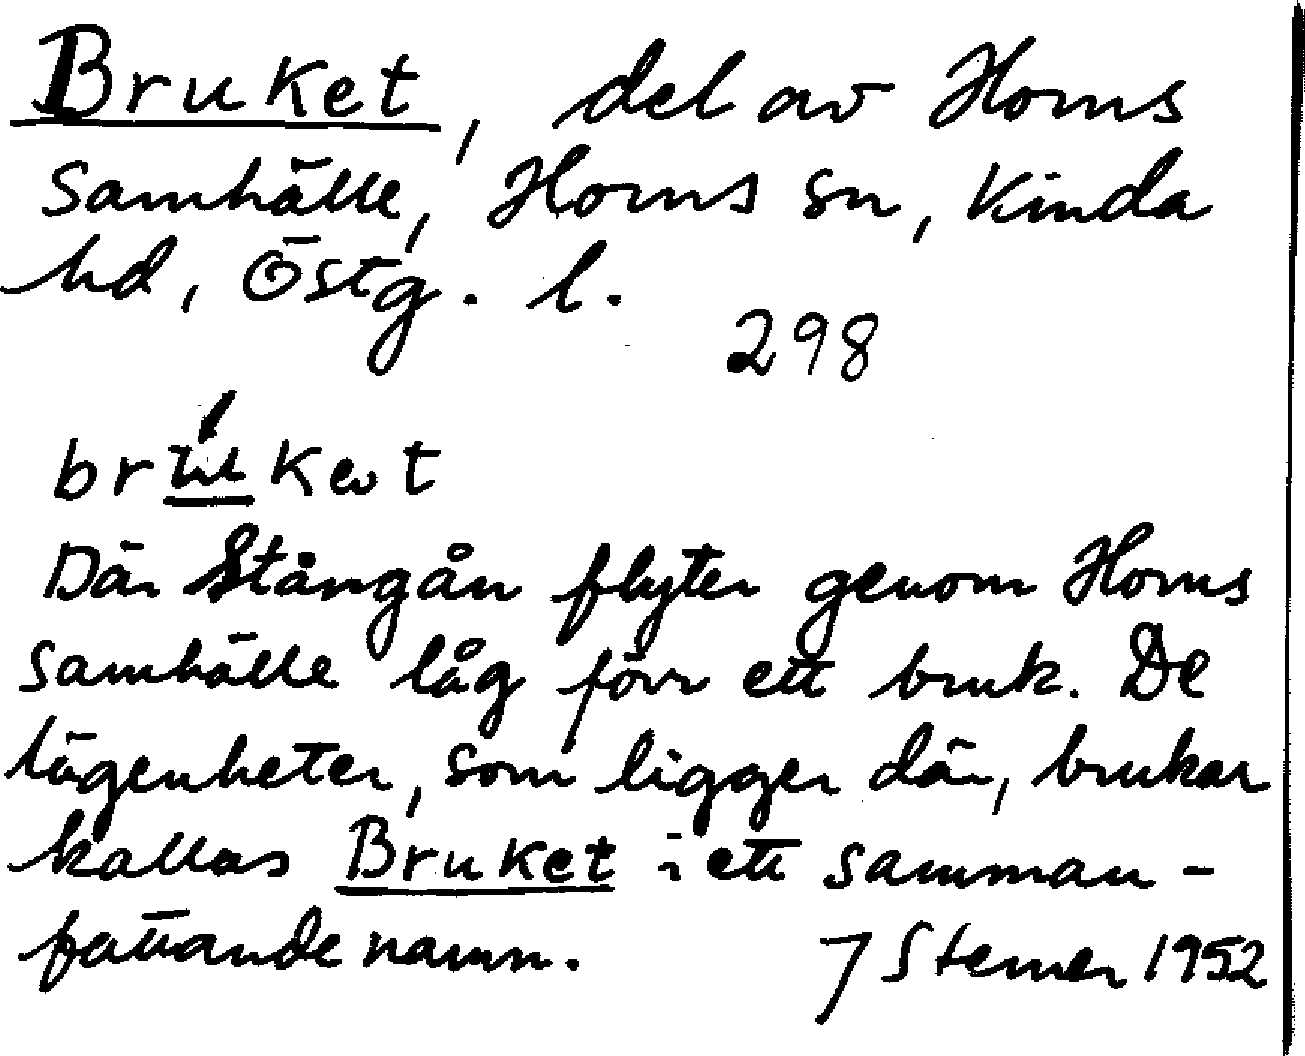 Bruket, del av Horns
samhälle, Horns sn, Kinda
hd, Östg. l.
298
Där Stångån flyter genom Horns
samhälle låg förr ett bruk. De
lägenheter, som ligger där, brukar
kallas Bruket i ett samman-
fattande namn.
1952